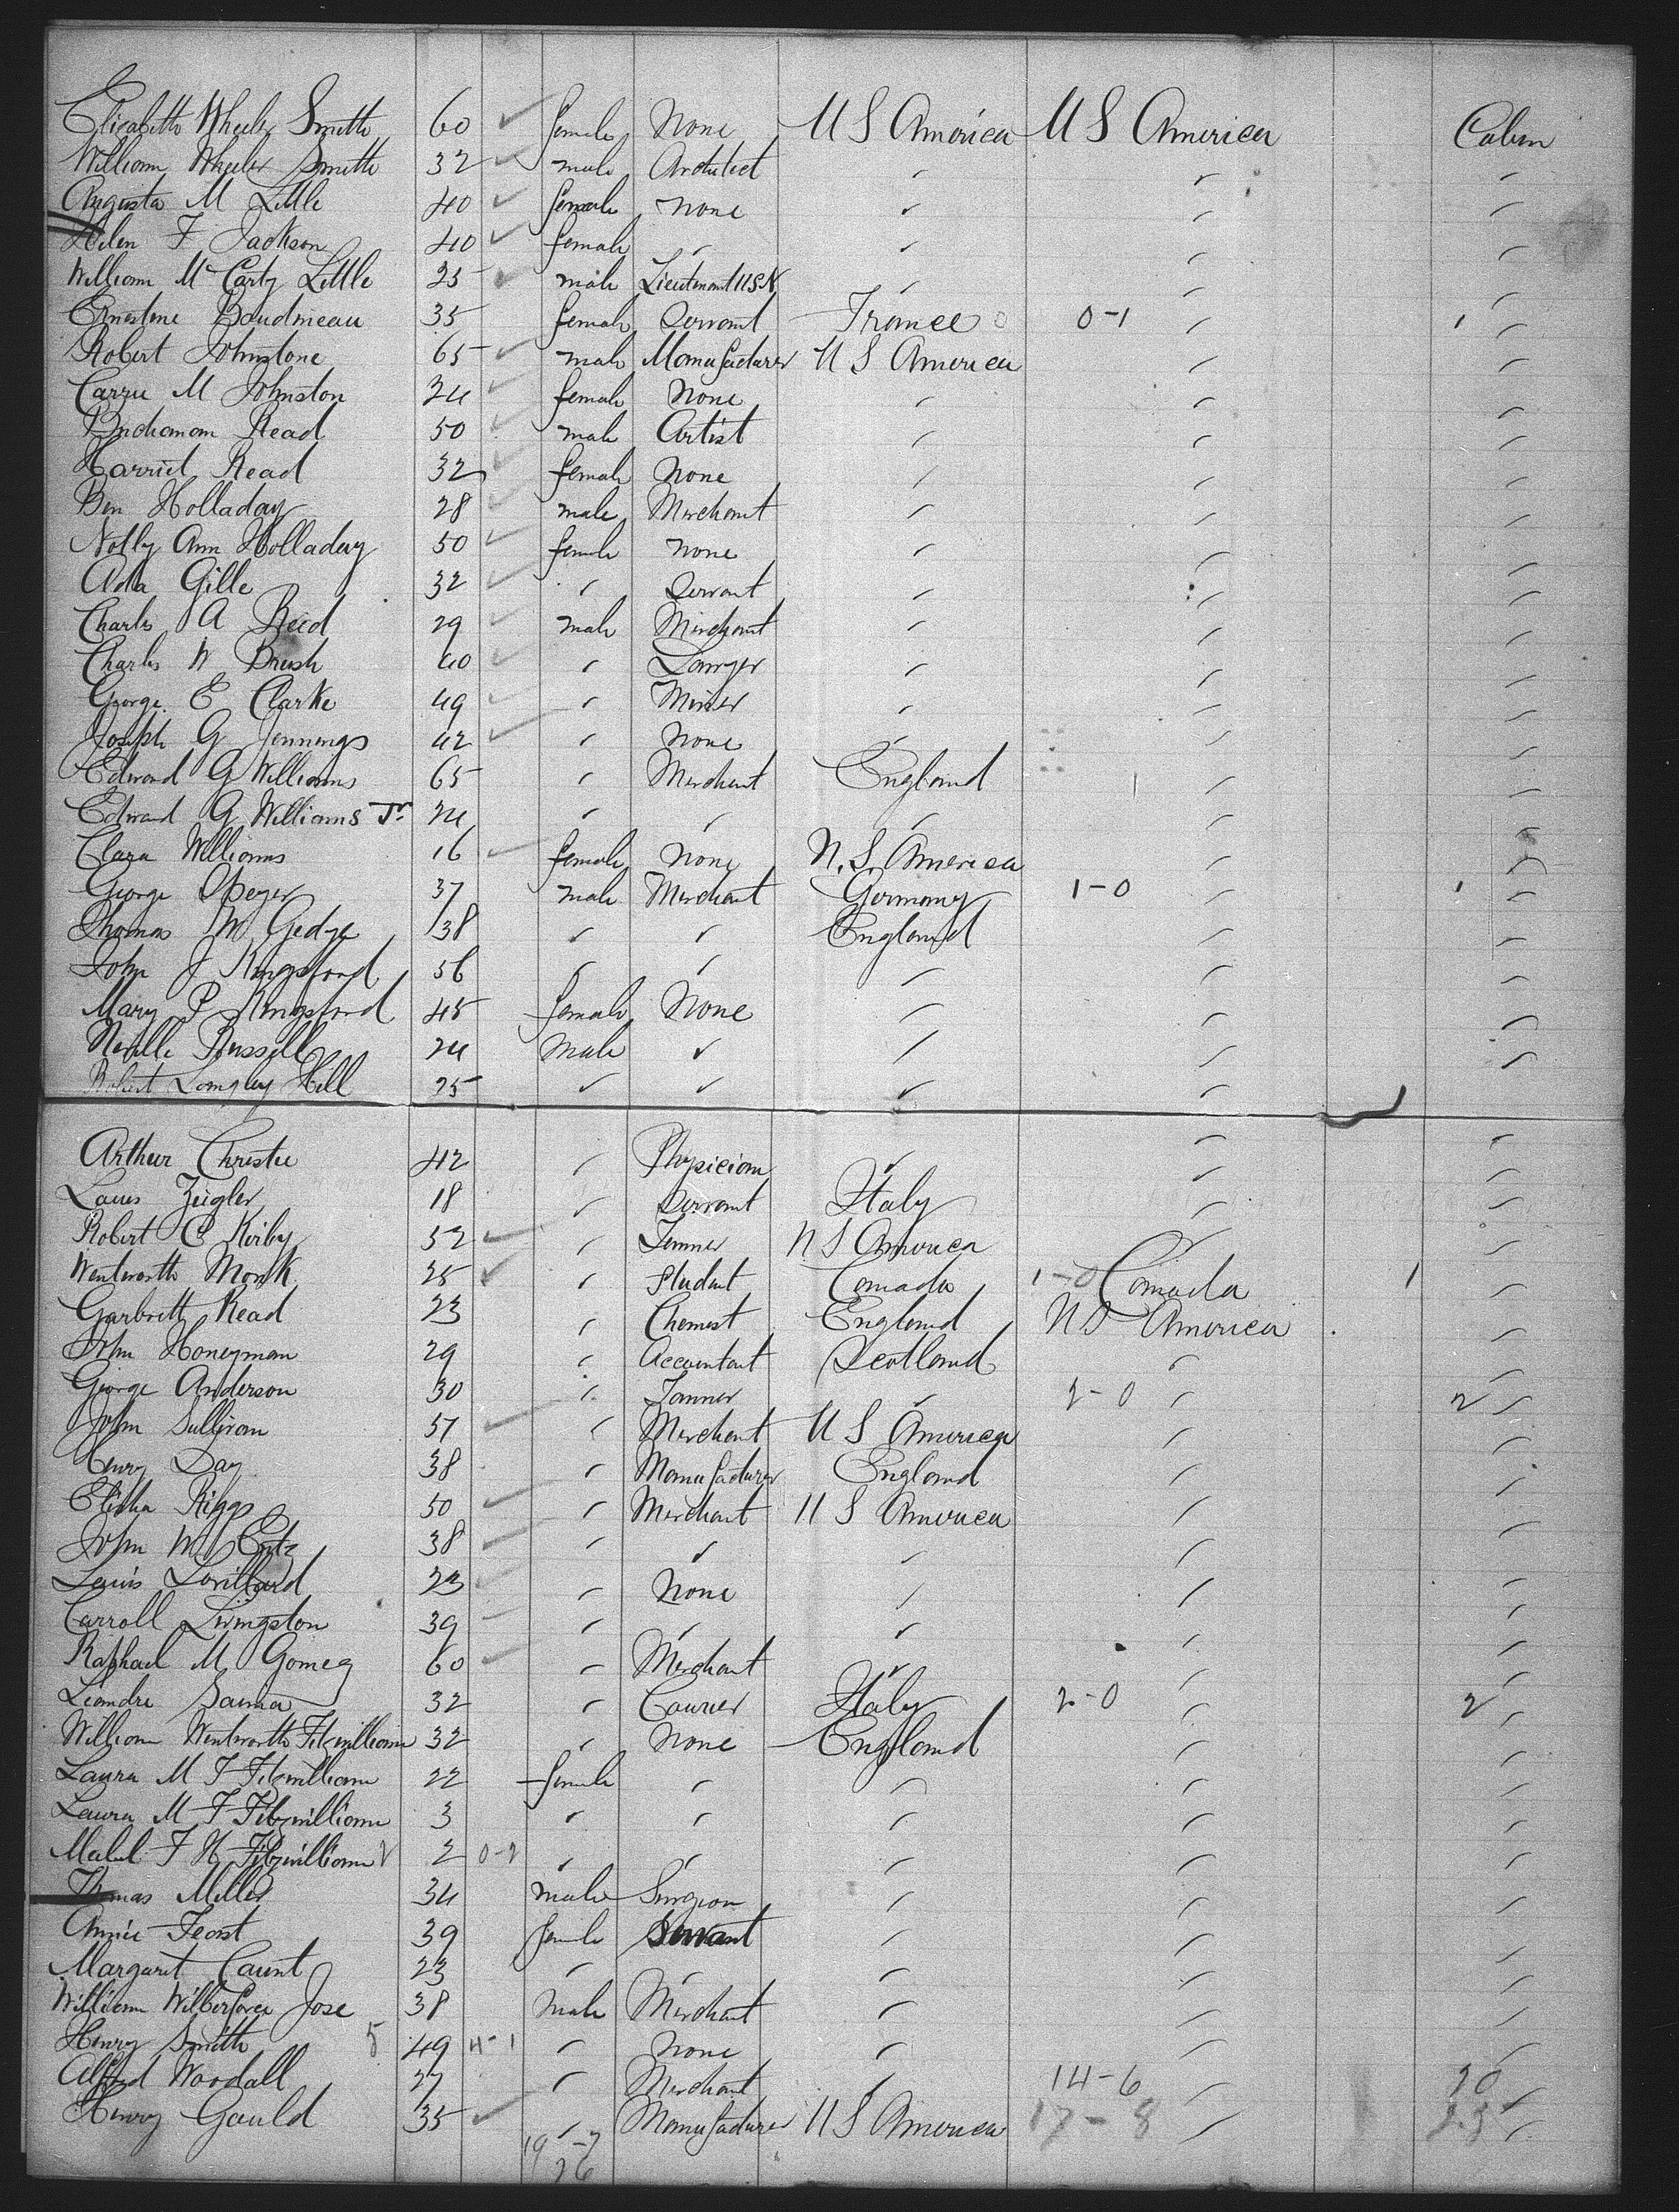 Elizabeth Wheeler Smith 60 ✓ female None U S America U S America Cabin
William Wheeler Smith 32 ✓ male Architect ✓ ✓ ✓
Augusta M Little 40 ✓ female none ✓ ✓ ✓
Helen F Jackson 40 ✓ female ✓ ✓ ✓ ✓
William McCarty Little 25 ✓ male Lieutenant USN ✓ ✓ ✓
Ernestine Boudmeau 35 female Servant France 0-1 ✓ 1 ✓
Robert Johnstone 65 ✓ male Manufacturer U S America ✓ ✓
Carrie M Johnston 24 ✓ female None ✓ ✓ ✓
Buchanan Read 50 ✓ male Artist ✓ ✓ ✓
Harriet Read 32 ✓ female None ✓ ✓ ✓
Ben Holladay 28 ✓ male Merchant ✓ ✓ ✓
Notly Ann Holladay 50 ✓ female None ✓ ✓ ✓
Ada Gille 32 ✓ ✓ Servant ✓ ✓ ✓
Charles A Reed 29 ✓ male Merchant ✓ ✓ ✓
Charles W Brush 40 ✓ ✓ Lawyer ✓ ✓ ✓
George E Clarke 49 ✓ ✓ Miner ✓ ✓ ✓
Joseph G Jennings 42 ✓ ✓ None ✓ ✓ ✓
Edward G Williams 65 ✓ Merchant England 1 ✓ ✓
Edward G Williams Jr 24 ✓ ✓ ✓ ✓ ✓
Clara Williams 16 ✓ female None U.S. America ✓ ✓
George Speyer 37 male Merchant Germany 1-0 ✓ 1 ✓
Thomas M Gedge 38 ✓ ✓ England ✓ ✓
John J Kingsford 56 ✓ ✓ ✓ ✓ ✓
Mary P Kingsford 45 female None ✓ ✓ ✓
Neville Russell 24 Male ✓ ✓ ✓ ✓
Robert Langley Hill 25 ✓ ✓ ✓ ✓
Arthur Christie 42 ✓ Physician ✓ ✓ ✓
Louis Zeigler 18 ✓ Servant Italy ✓ ✓
Robert C Kirby 52 ✓ ✓ Tanner U S America ✓ ✓
Wentworth Monk 25 ✓ ✓ Student Canada 1-0 Canada 1 ✓
Garbrett Read 23 ✓ Chemist England U S America ✓
John Honeyman 29 ✓ Accountant Scotland ✓ ✓
George Anderson 30 ✓ Tanner ✓ 2-0 ✓ 2 ✓
John Sullivan 57 ✓ ✓ Merchant U S America ✓ ✓
Henry Day 38 ✓ Manufacturer England ✓ ✓
Elisha Riggs 50 ✓ ✓ Merchant U S America ✓ ✓
John W 38 ✓ ✓ ✓ ✓ ✓ ✓
Louis Lorillard 23 ✓ ✓ None ✓ ✓ ✓
Carroll Livingston 39 ✓ ✓ ✓ ✓ ✓ ✓
Raphael M Gomez 60 ✓ ✓ Merchant ✓ ✓ ✓
Leandre Sauma 32 ✓ Courier Italy 2-0 ✓ 2 ✓
William Wentworth Fitzwilliam 32 ✓ None England ✓ ✓
Laura M F Fitzwilliam 22 female ✓ ✓ ✓ ✓
Laura M F Fitzwilliam 3 ✓ ✓ ✓ ✓ ✓
Mabel F H Fitzwilliam 2 2 0-2 ✓ ✓ ✓ ✓ ✓
Thomas Miller 34 male Surgeon ✓ ✓ ✓
Annie Feast 39 female Servant ✓ ✓ ✓
Margaret Caunt 23 ✓ ✓ ✓ ✓ ✓
William Wilberforce Jose 38 male Merchant ✓ ✓ ✓
Henry Smith 5 49 4-1 ✓ None ✓ ✓ ✓
Alfred Woodall 27 ✓ Merchant ✓ 14-6 ✓ 20 ✓
Henry Gould 35 ✓ ✓ Manufacturer U S America 17-8 ✓ 25 ✓
19-7
26